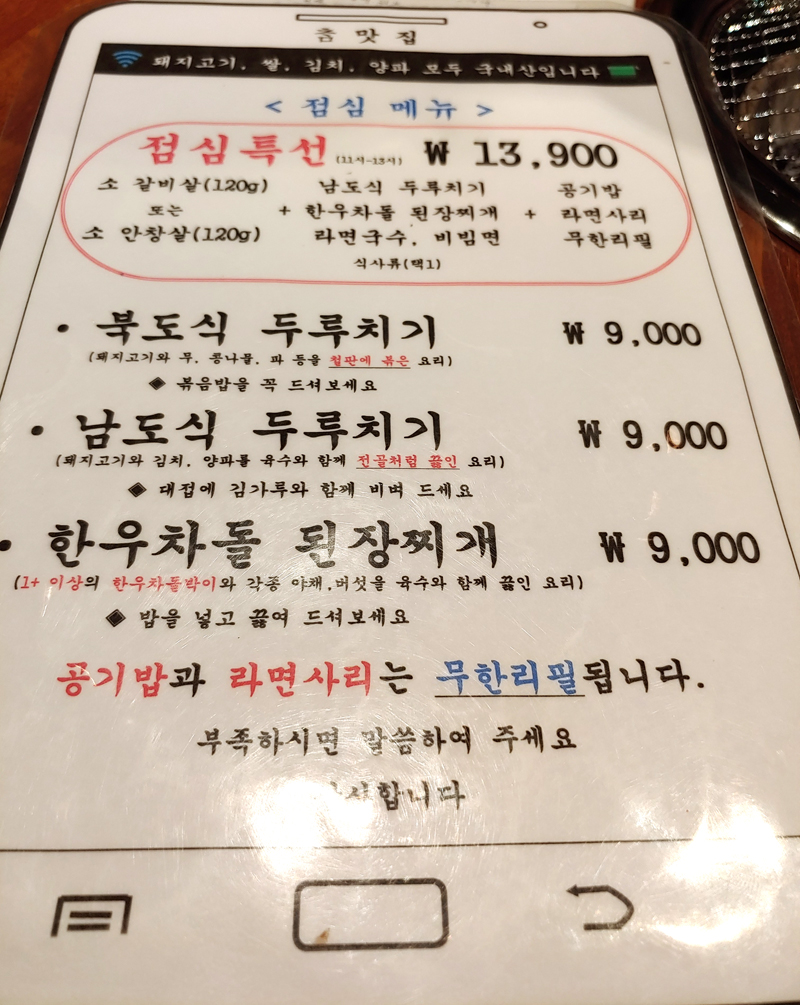 춤 맛 집
돼지고기, 쌀, 김치, 양파 모두 국내산입니다
< 점심 메뉴 >
점심특선 (11시-13시) ₩ 13,900
소 갈비살(120g) 남도식 두루치기 공기밥
또는 + 한우차돌 된장찌개 + 라면사리
소 안창살(120g) 라면국수, 비빔면 무한리필
식사류(택1)
• 북도식 두루치기 ₩ 9,000
(돼지고기와 무, 콩나물, 파 등을 철판에 볶은 요리)
◈ 볶음밥을 꼭 드셔보세요
• 남도식 두루치기 ₩ 9,000
(돼지고기와 김치, 양파를 육수와 함께 전골처럼 끓인 요리)
◈ 대접에 김가루와 함께 비벼 드세요
• 한우차돌 된장찌개 ₩ 9,000
(1+ 이상의 한우차돌박이와 각종 야채,버섯을 육수와 함께 끓인 요리)
◈ 밥을 넣고 끓여 드셔보세요
공기밥과 라면사리는 무한리필됩니다.
부족하시면 말씀하여 주세요